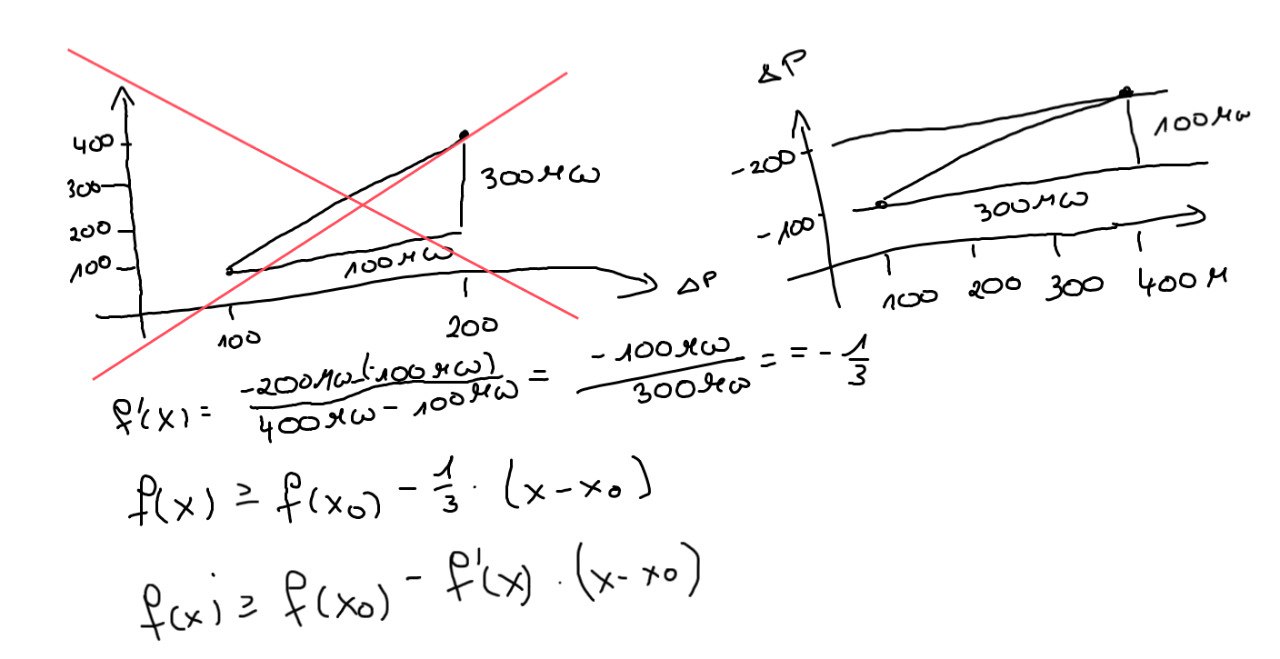 400
300
200
100
300MW
100MW
ΔP
100
200
ΔP
-200
-100
100MW
300MW
100
200
300
400M
f'(x) = (-200MW-(-100MW))/(400MW - 100MW) = (-100MW)/(300MW) = = - 1/3
f(x) ≥ f(x0) - 1/3 · (x-x0)
f(x) ≥ f(x0) - f'(x) · (x-x0)